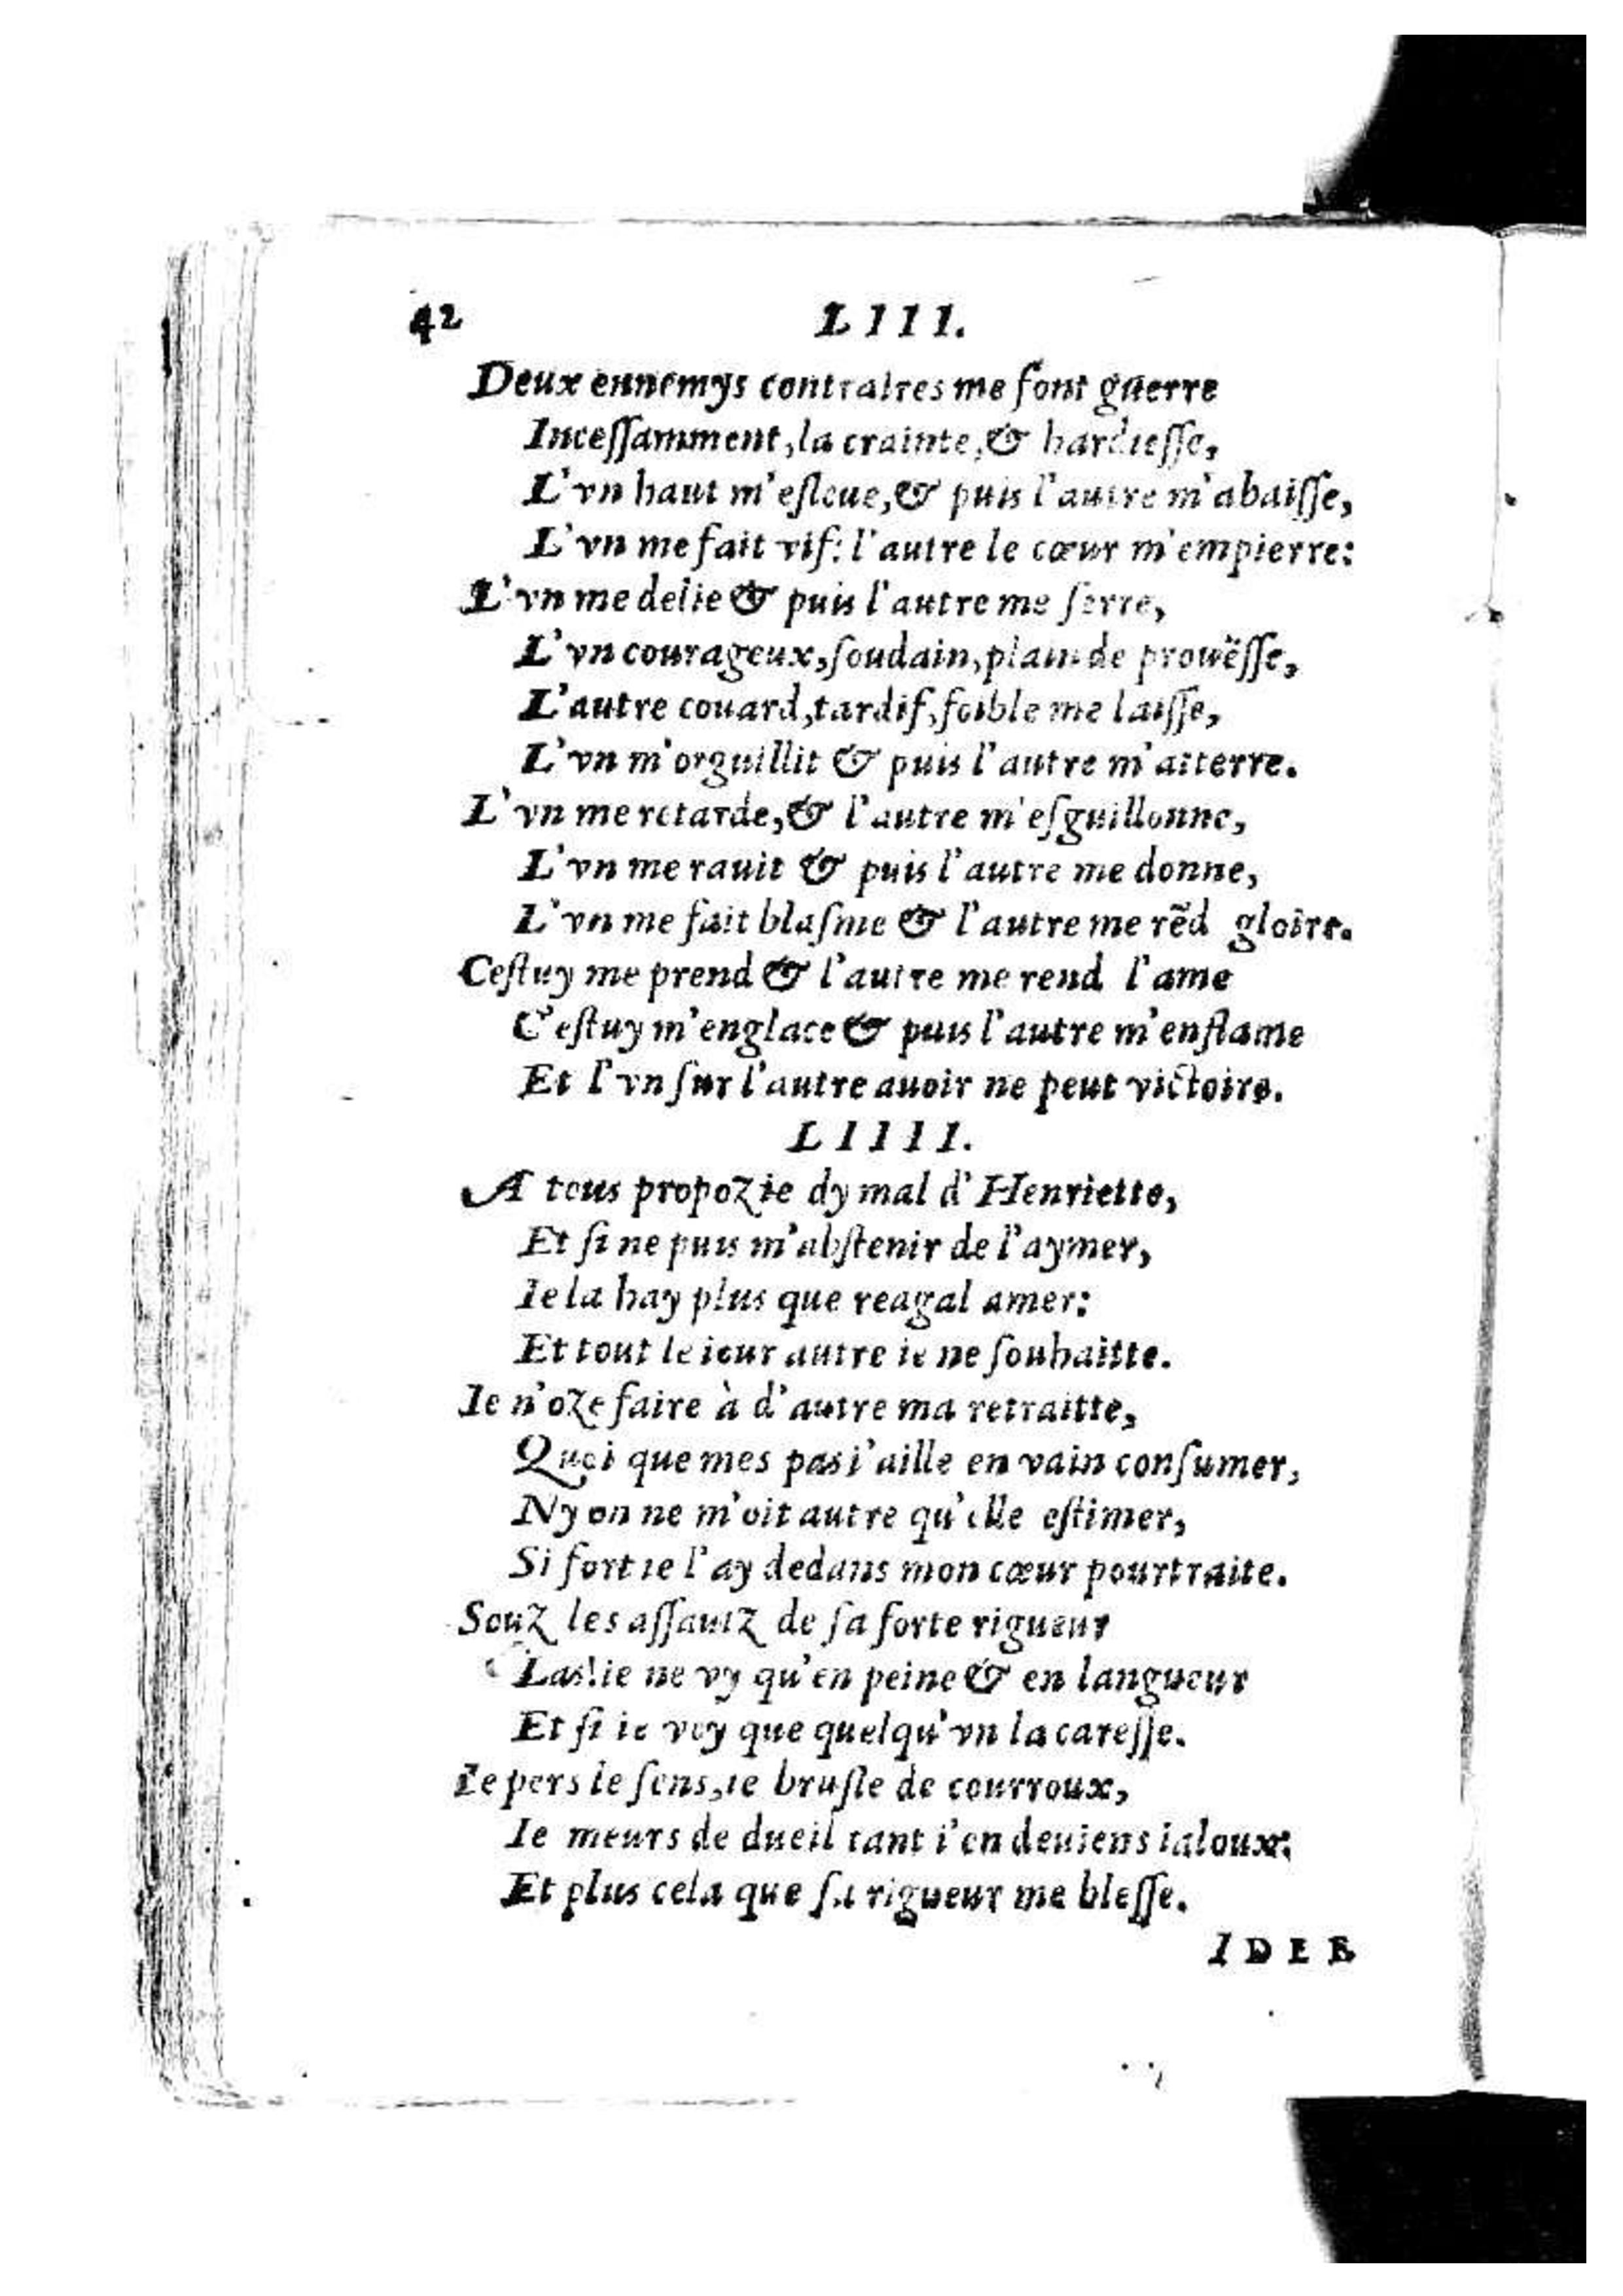 42 LIII.
Deux ennemys contraires me font guerre
Inceſſamment, la crainte, & hardieſſe,
L'vn haut m'eſleue, & puis l'autre m'abaiſſe,
L'vn me fait vif: l'autre le cœur m'empierre:
L'vn me delie & puis l'autre me ſerre,
L'vn courageux, ſoudain, plain de prowëſſe,
L'autre couard, tardif, foible me laiſſe,
L'vn m'orguillit & puis l'autre m'atterre.
L'vn me retarde, & l'autre m'eſguillonne,
L'vn me rauit & puis l'autre me donne,
L'vn me fait blaſme & l'autre me rẽd gloire.
Ceſtuy me prend & l'autre me rend l'ame
C'eſtuy m'englace & puis l'autre m'enflame
Et l'vn ſur l'autre auoir ne peut victoire.
LIIII.
A tous propoz ie dy mal d'Henriette,
Et ſi ne puis m'abſtenir de l'aymer,
Ie la hay plus que reagal amer:
Et tout le iour autre ie ne ſouhaitte.
Ie n'oze faire à d'autre ma retraitte,
Quoi que mes pas i'aille en vain conſumer,
Ny on ne m'oit autre qu'elle eſtimer,
Si fort ie l'ay dedans mon cœur pourtraite.
Souz les aſſautz de ſa forte rigueur
Las! ie ne vy qu'en peine & en langueur
Et ſi ie voy que quelqu'vn la careſſe.
Ie pers le ſens, ie bruſle de courroux,
Ie meurs de dueil tant i'en deuiens ialoux:
Et plus cela que ſa rigueur me bleſſe.
IDEE